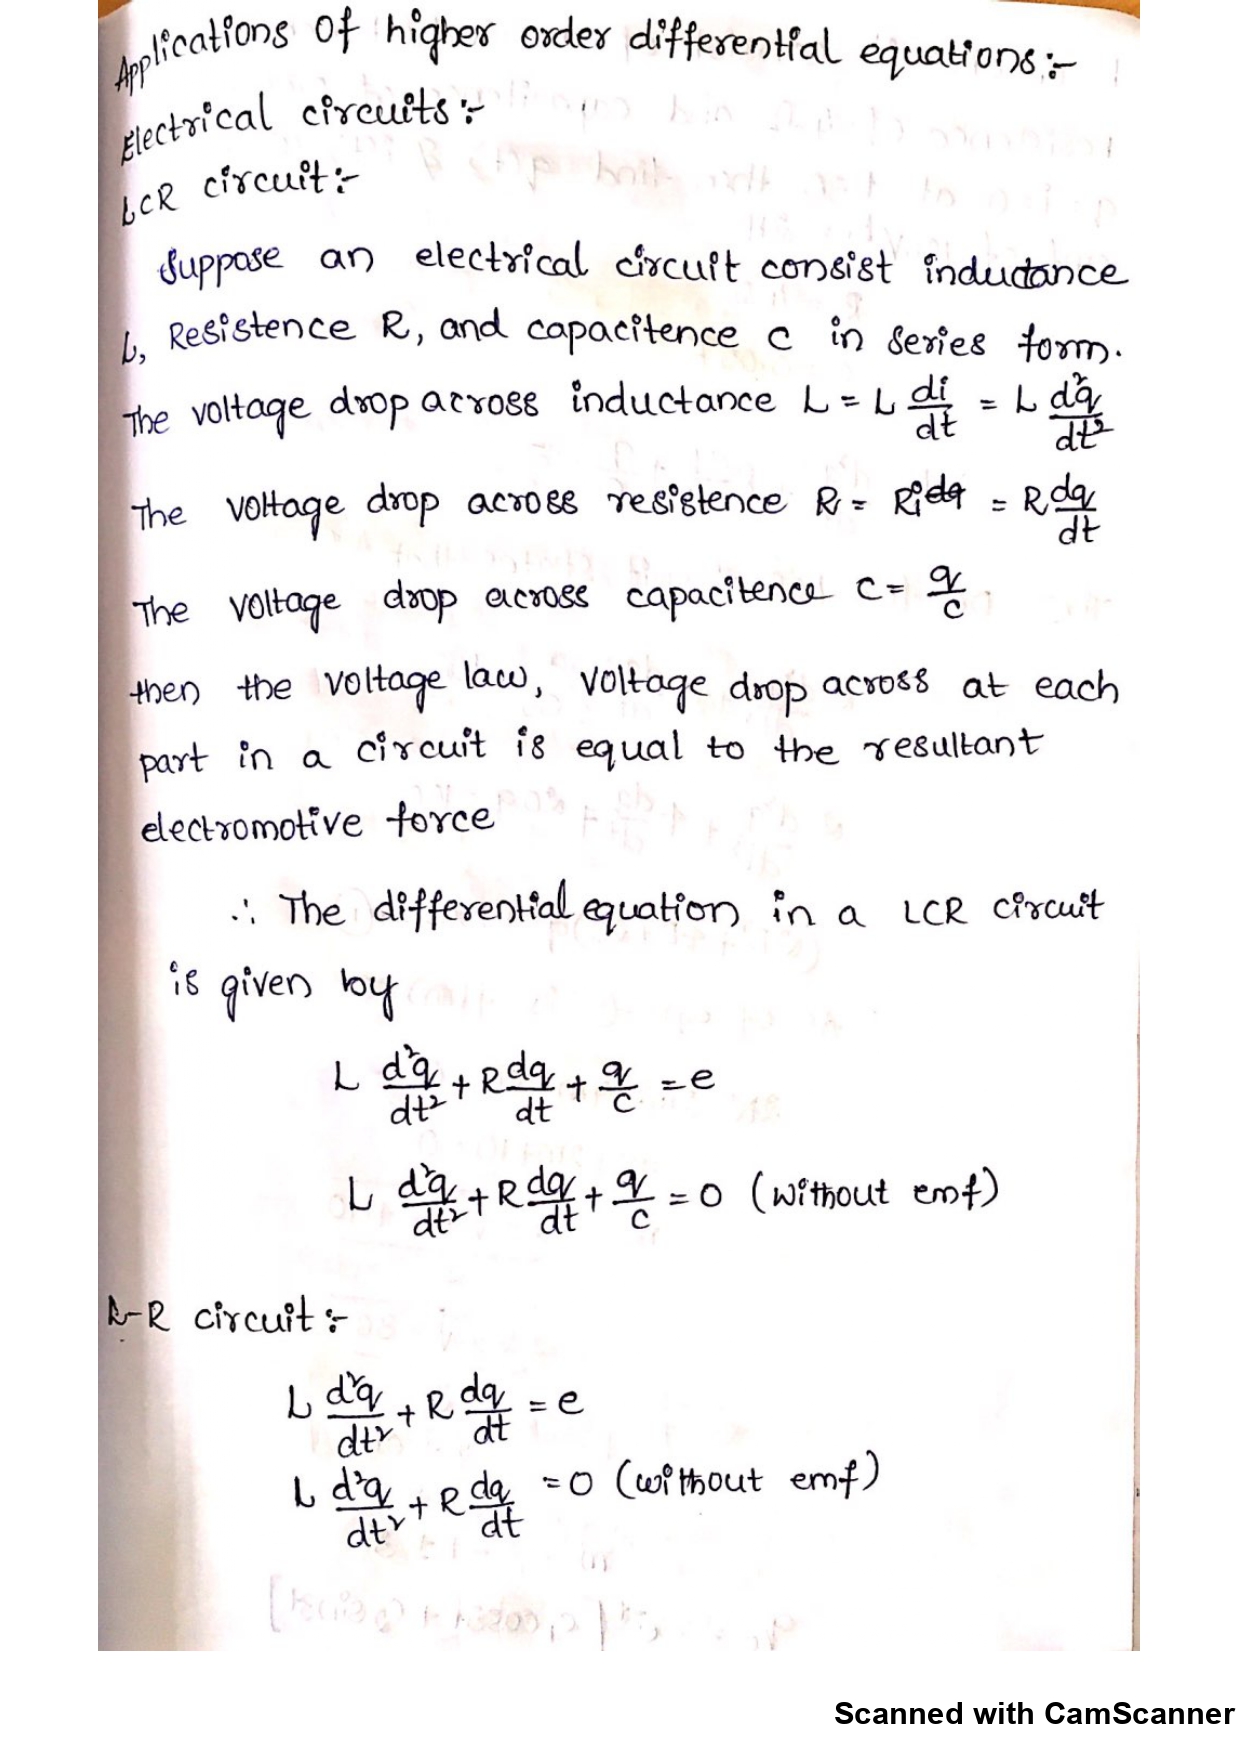 Applications of higher order differential equations :-
Electrical circuits :-
LCR circuit :-
Suppose an electrical circuit consist inductance
L, Resistence R, and capacitence c in series form.
The voltage drop across inductance L = L di/dt = L d²q/dt²
The voltage drop across resistence R = Ri = R dq/dt
The voltage drop across capacitence c = q/c
then the voltage law, voltage drop across at each
part in a circuit is equal to the resultant
electromotive force
∴ The differential equation in a LCR circuit
is given by
L d²q/dt² + R dq/dt + q/c = e
L d²q/dt² + R dq/dt + q/c = 0 (without emf)
L-R circuit :-
L d²q/dt² + R dq/dt = e
L d²q/dt² + R dq/dt = 0 (without emf)
Scanned with CamScanner